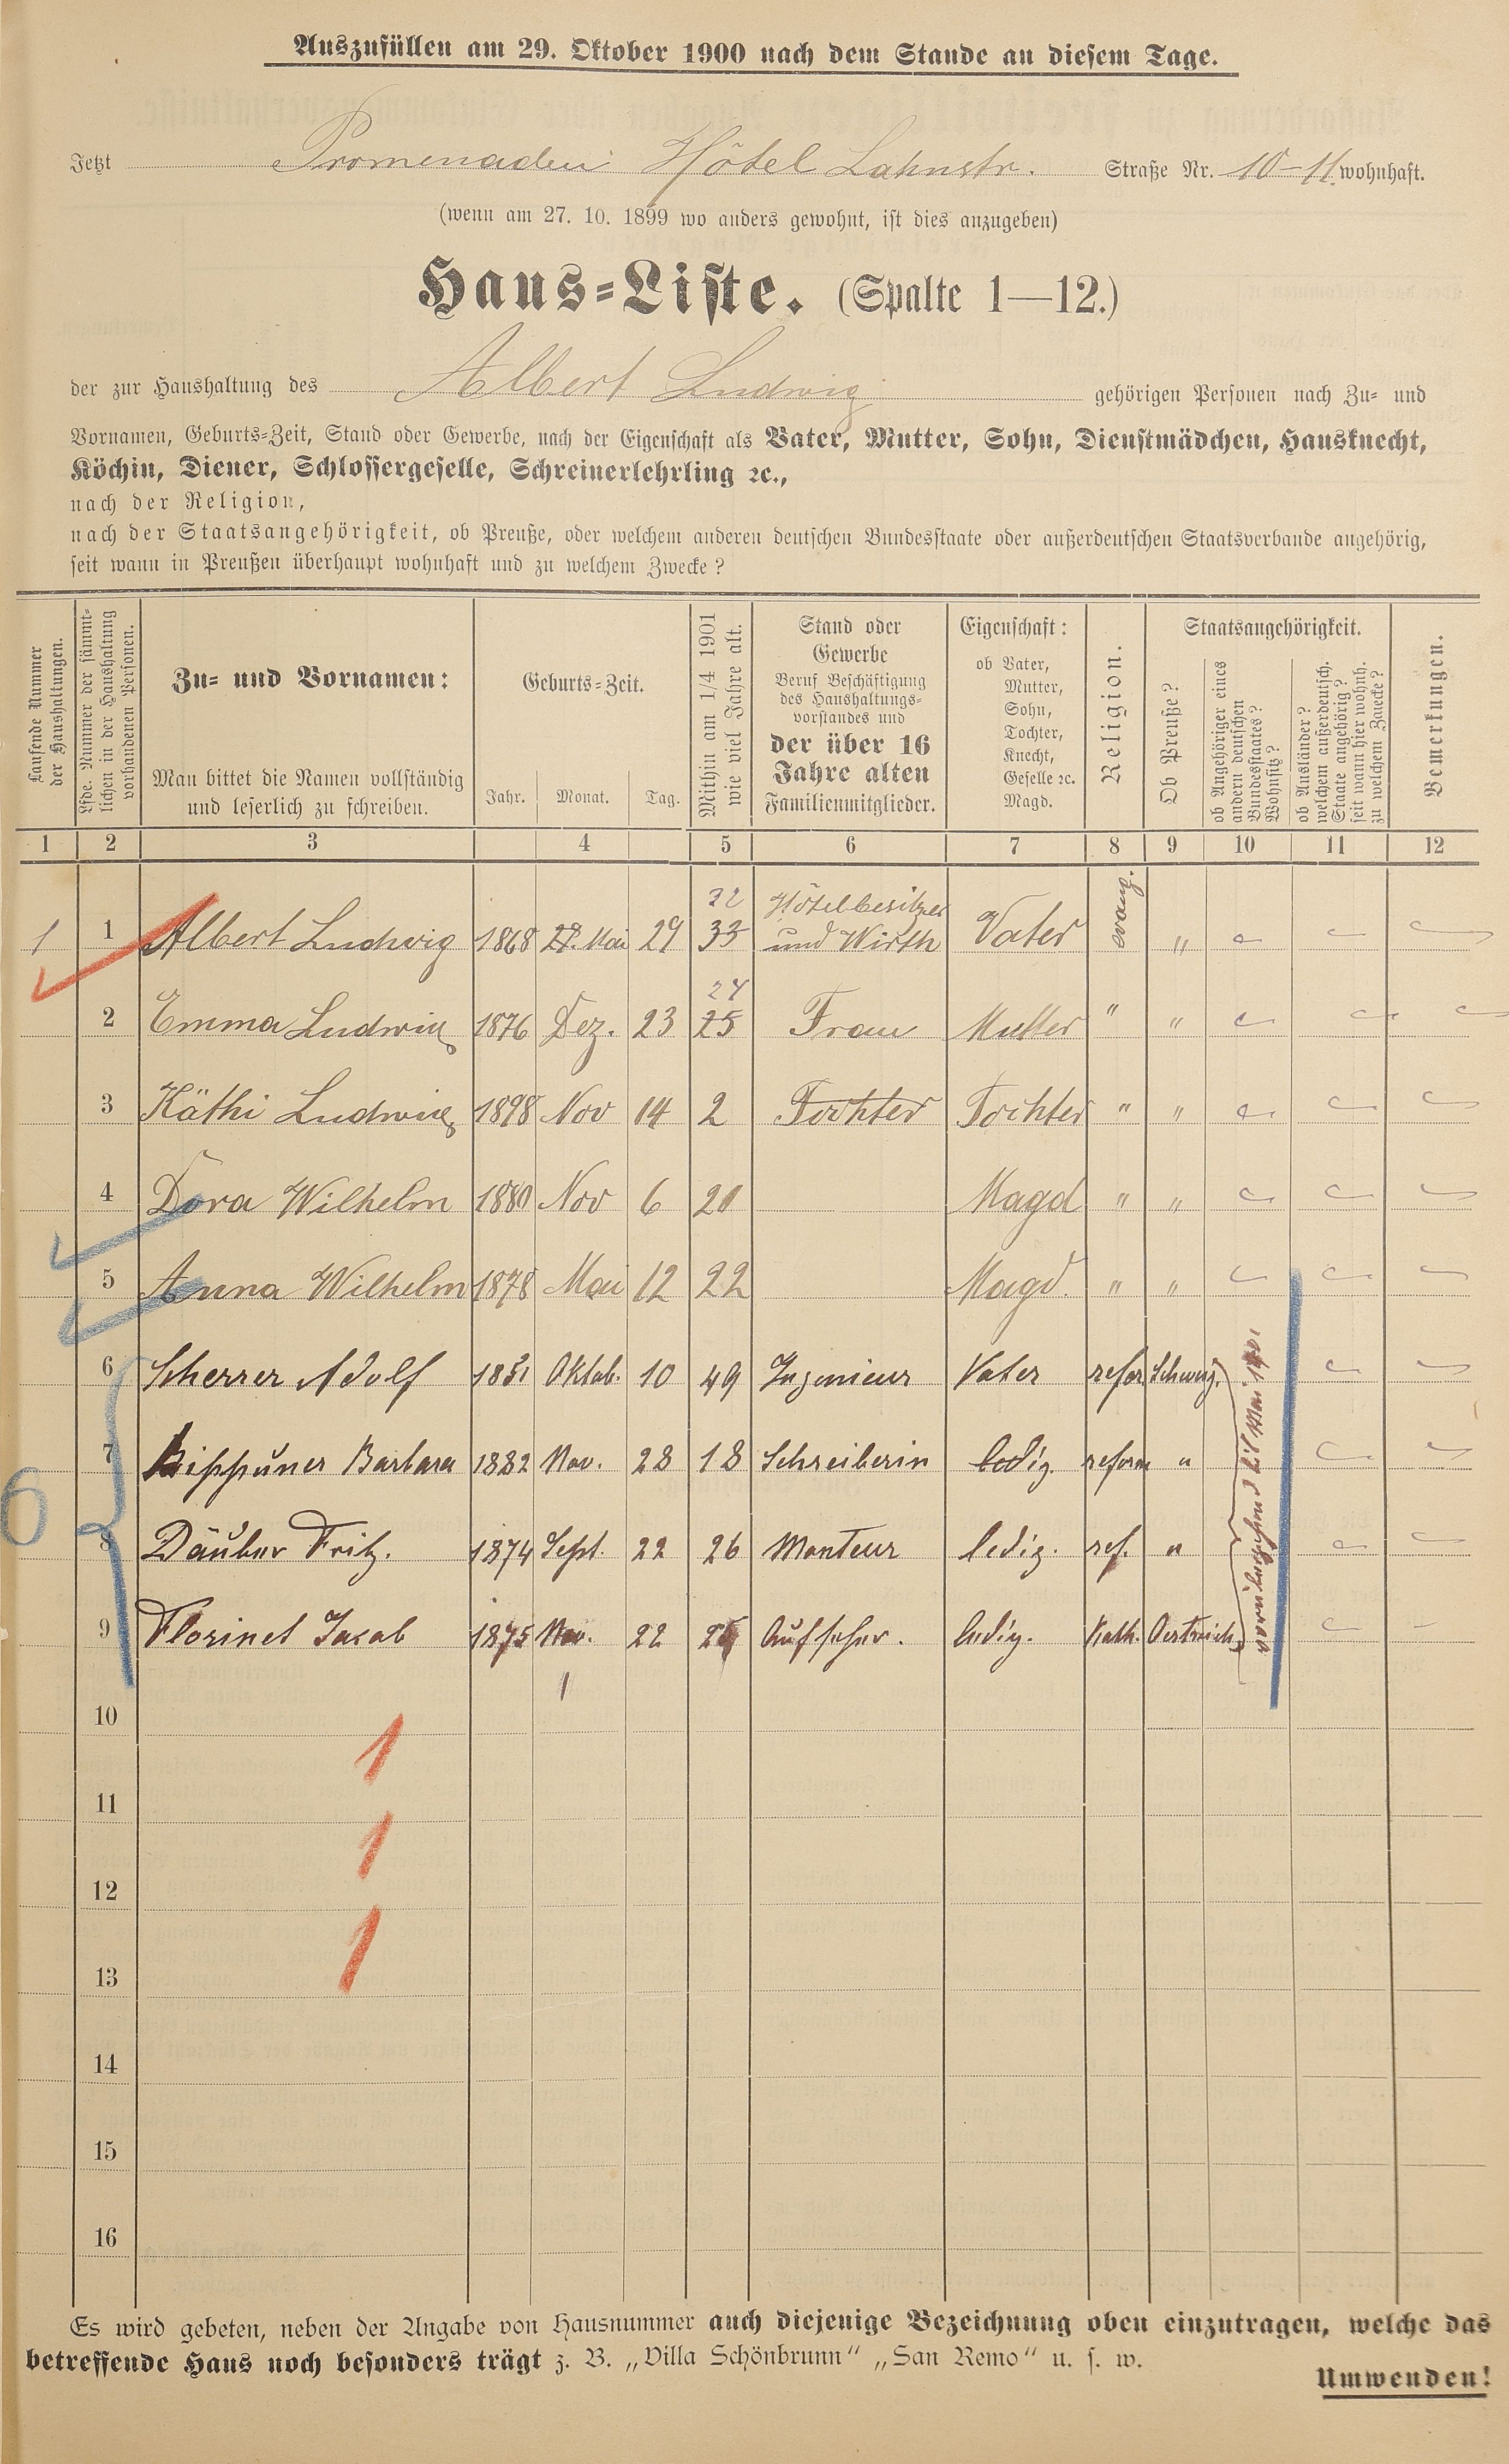 Auszufüllen am 29. Oktober 1900 nach dem Stande an diesem Tage.
Jetzt Promenaden Hôtel Lahnstr. Straße Nr. 10-11. wohnhaft.
(wenn am 27. 10. 1899 wo anders gewohnt, ist dies anzugeben)
Haus=Liste. (Spalte 1—12.)
der zur Haushaltung des Albert Ludwig gehörigen Personen nach Zu= und
Vornamen, Geburts=Zeit, Stand oder Gewerbe, nach der Eigenschaft als Vater, Mutter, Sohn, Dienstmädchen, Hausknecht,
Köchin, Diener, Schlossergeselle, Schreinerlehrling ꝛc.,
nach der Religion,
nach der Staatsangehörigkeit, ob Preuße, oder welchem anderen deutschen Bundesstaate oder außerdeutschen Staatsverbande angehörig,
seit wann in Preußen überhaupt wohnhaft und zu welchem Zwecke?
Laufende Nummer
der Haushaltungen.
Lfde. Nummer der sämmt=
lichen in der Haushaltung
vorhandenen Personen.
Zu= und Vornamen:
Man bittet die Namen vollständig
und leserlich zu schreiben.
Geburts=Zeit.
Jahr. Monat. Tag.
Mithin am 1/4 1901
wie viel Jahre alt.
Stand oder
Gewerbe
Beruf Beschäftigung
des Haushaltungs=
vorstandes und
der über 16
Jahre alten
Familienmitglieder.
Eigenschaft:
ob Vater,
Mutter,
Sohn,
Tochter,
Knecht,
Geselle ꝛc.
Magd.
Religion.
Staatsangehörigkeit.
Ob Preuße?
ob Angehöriger eines
andern deutschen
Bundesstaates?
Wohnsitz?
ob Ausländer?
welchem außerdeutsch.
Staate angehörig?
seit wann hier wohnh.
zu welchem Zwecke?
Bemerkungen.
1 2 3 4 5 6 7 8 9 10 11 12
32 Hôtelbesitzer
1 1 Albert Ludwig 1868 28. Mai 29 33 und Wirth Vater evang. "
24
2 Emma Ludwig 1876 Dez. 23 25 Frau Mutter " "
3 Käthi Ludwig 1898 Nov 14 2 Tochter Tochter " "
4 Dora Wilhelm 1880 Nov 6 20 Magd " "
5 Anna Wilhelm 1878 Mai 12 22 Magd. " "
6 Scherrer Adolf 1851 Oktob. 10 49 Ingenieur Vater refor. Schweiz.
7 Barbara 1882 Nov. 28 18 Schreiberin ledig. reform "
8 Däuber Fritz. 1874 Sept. 22 26 Monteur ledig. ref. "
9 Florinet Jacob 1875 Nov. 22 25 Aufseher. ledig. Kath. Oestreich.
vorübergehend bis Mai 1901
6
1
10
1
11
1
12
1
13
14
15
16
Es wird gebeten, neben der Angabe von Hausnummer auch diejenige Bezeichnung oben einzutragen, welche das
betreffende Haus noch besonders trägt z. B. „Villa Schönbrunn“ „San Remo“ u. s. w.
Umwenden!